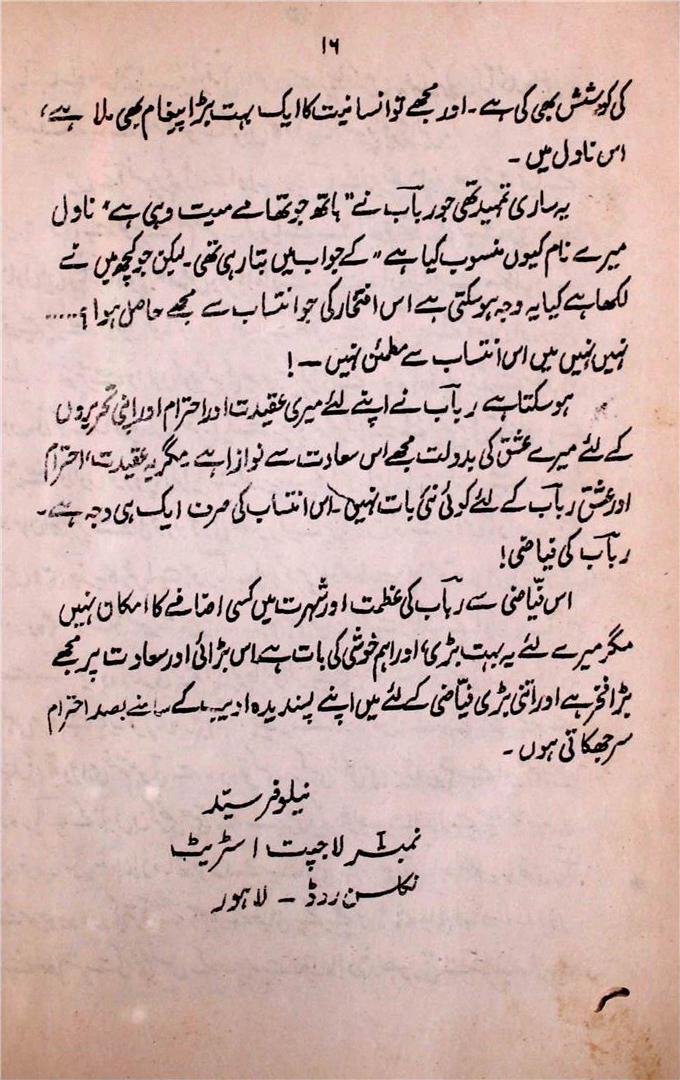 ۱۶
کی کوشش بھی کی ہے۔ اور مجھے تو انسانیت کا ایک بہت بڑا پیغام بھی ملا ہے،
اس ناول میں۔
یہ ساری تمہید تھی جو ربابؔ نے "ہاتھ جو تھامے میت وہی ہے" ناول
میرے نام کیوں منسوب کیا ہے" کے جواب میں بتا رہی تھی۔ لیکن جو کچھ میں نے
لکھا ہے کیا یہ وجہ ہوسکتی ہے اس افتخار کی جو انتساب سے مجھے حاصل ہوا؟.....
نہیں نہیں میں اس انتساب سے مطمئن نہیں ــ!
ہوسکتا ہے ربابؔ نے اپنے لئے میری عقیدت اور احترام اور اپنی تحریروں
کے لئے میرے عشق کی بدولت مجھے اس سعادت سے نوازا ہے مگر یہ عقیدت، احترام
اور عشق ربابؔ کے لئے کوئی نئی بات نہیں۔ اس انتساب کی صرف ایک ہی وجہ ہے۔
ربابؔ کی فیاضی!
اس فیّاضی سے ربابؔ کی عظمت اور شہرت میں کسی اضافے کا امکان نہیں
مگر میرے لئے یہ بہت بڑی، اور اہم خوشی کی بات ہے اس بڑائی اور سعادت پر مجھے
بڑا فخر ہے اور اتنی بڑی فیّاضی کے لئے میں اپنے پسندیدہ ادیب کے سامنے بصد احترام
سر جھکاتی ہوں۔
نیلوفر سیّد
نمبر I لاجپت اسٹریٹ
نکلسن روڈ ۔ لاہور